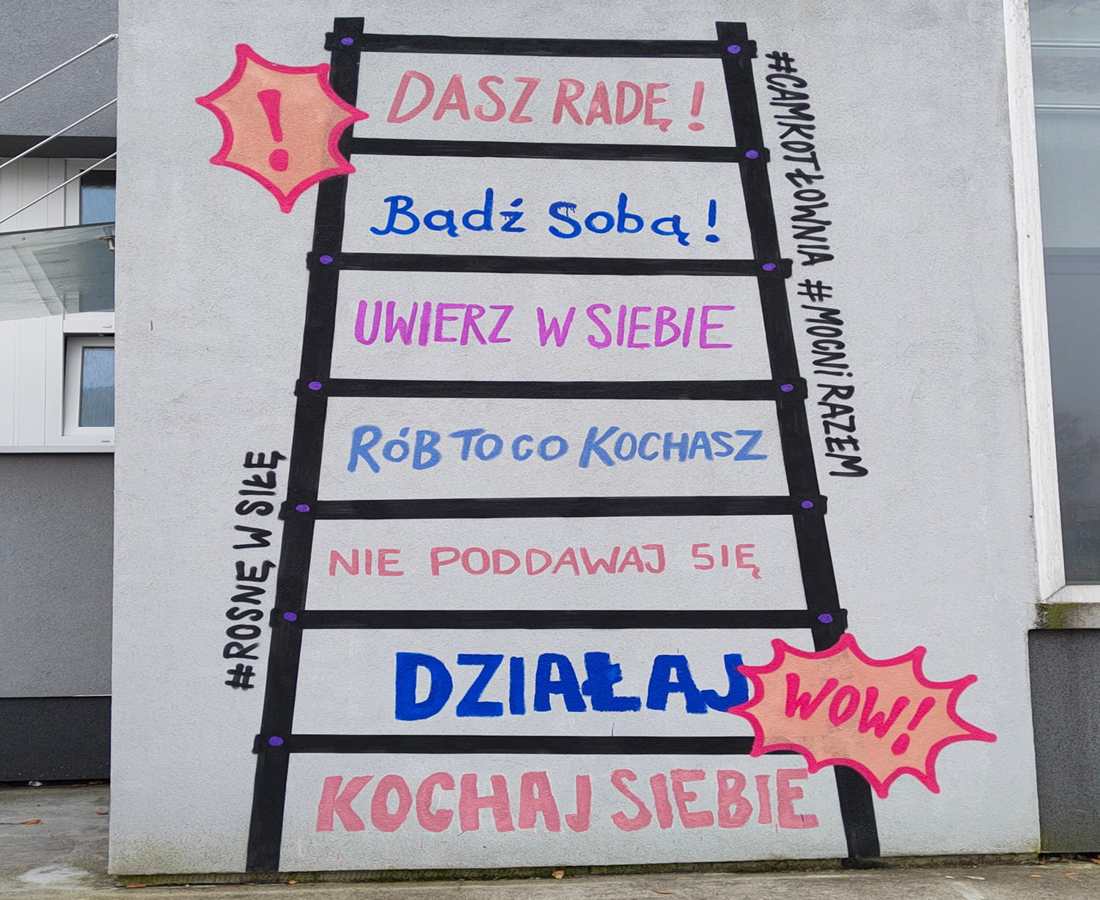 !
DASZ RADĘ!
Bądź Sobą!
UWIERZ W SIEBIE
RóB TO CO KOCHASZ
NIE PODDAWAJ SIĘ
DZIAŁAJ
WOW!
KOCHAJ SIEBIE
#ROSNĘ W SIŁĘ
#CAMKOTŁOWNIA #MOCNi RAZEM